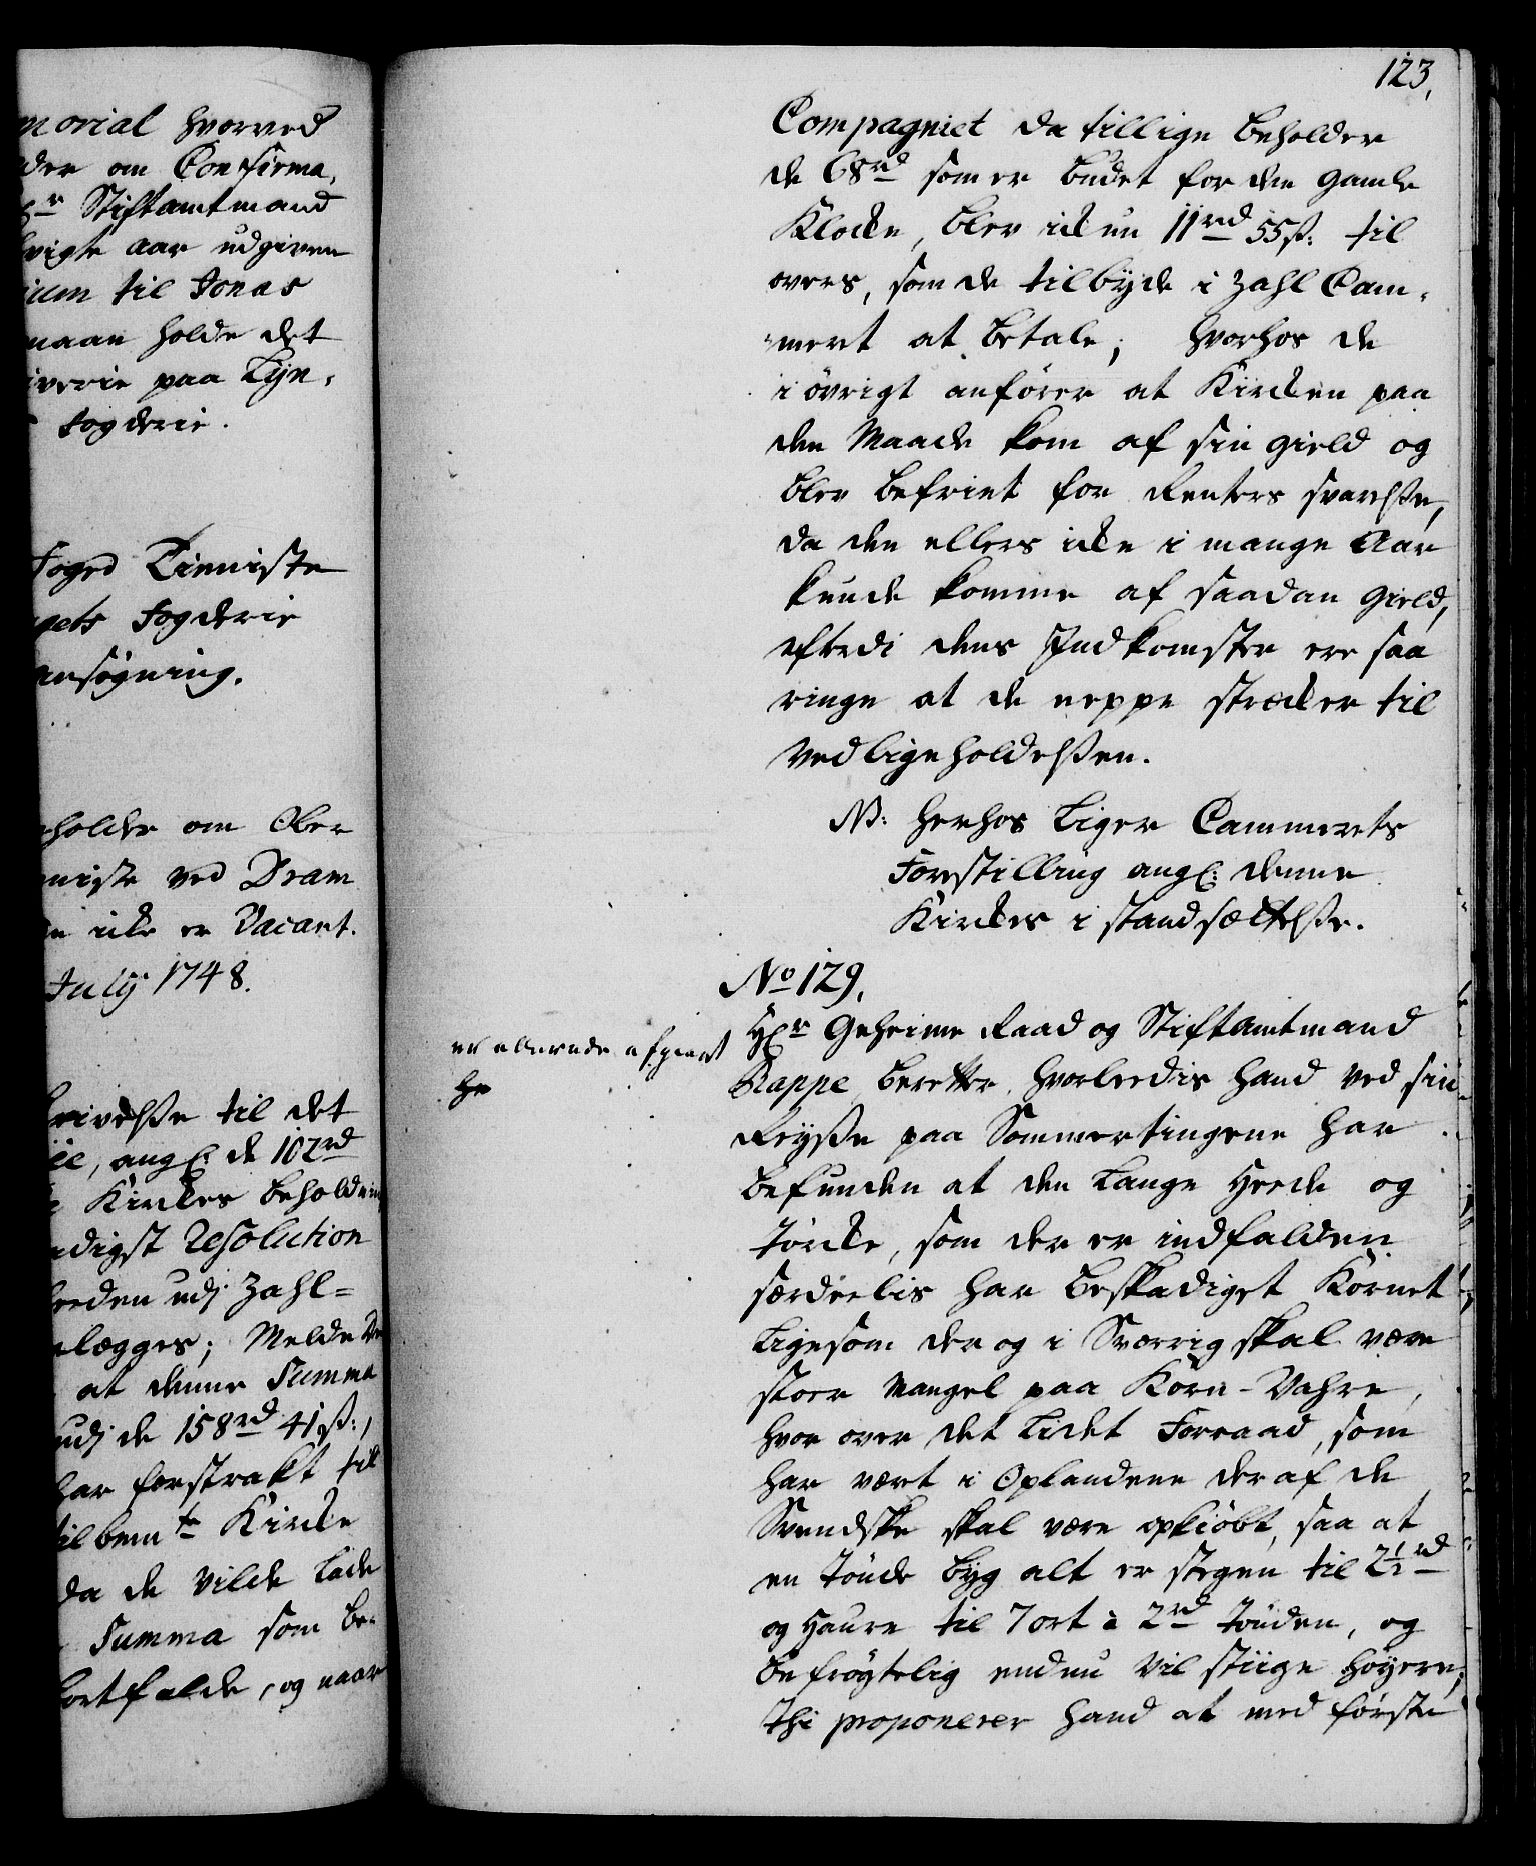 morial hvorved
der om Confirma,
Hr Stiftamtmand
vigte aar udgiven
ium til Jonas
maan holde det
iverie paa Tÿn,
Fogderie.
Foged Tieniste
pets Fogderie
ansögning.
holder om Ober
niste ved Dram
icke er Vacant.
July 1748.
krivelsse til det
ie, angl: de 102 rd
Kirckes Beholdnin
digst Resolution
udi Zahl=
lægges; Melder
at denne Summa
udj de 158 rd 41 ß:,
har forstrakt til
til bem.te Kircke
da de vilde lade
Summa som be-
bortfalde, og naar
123,
Compagniet da tillige beholder
de 68 rd som er budet for den gamle
Klocke, blev ickun 11 rd 55 ß: til
overs, som de tilbÿde i Zahl Cam,
meret at betale; hvorhos de
i övrigt anförer at Kircken paa
den Maade kom af sin gield og
blev befriet for Renters svarelsse,
da den ellers icke i mange Aar
kunde komme af saadan gield,
efterdi dens Indkomster ere saa
ringe at de neppe strecker til
Vedligeholdelssen.
NB: herhos Liger Cammerets
Forestilling angl: denne
Kirckes i standsættelsse.
No 129,
er allerede afgiort
Hr Geheime Raad og Stiftamtmand
Rappe beretter, hvorledis hand ved sin
Reÿsse paa Sommertingene har
befunden at den Lange Heede og
Törcke, som der er indfalden
særdeelis har beskadiget Kornet
Ligesom der og i Sverrig skal være
stoer Mangel paa Korn-Vahre,
hvor over det Lidet Forraad, som
har vært i Oplandene der af de
Svendske skal være opkiöbt, saa at
en Tönde Byg alt er stegen til 2½ rd
og Haure til 7 ort à 2 rd Tönden, og
befrögtelig endnu vil stiige höÿere;
Thi proponerer hand at med förste